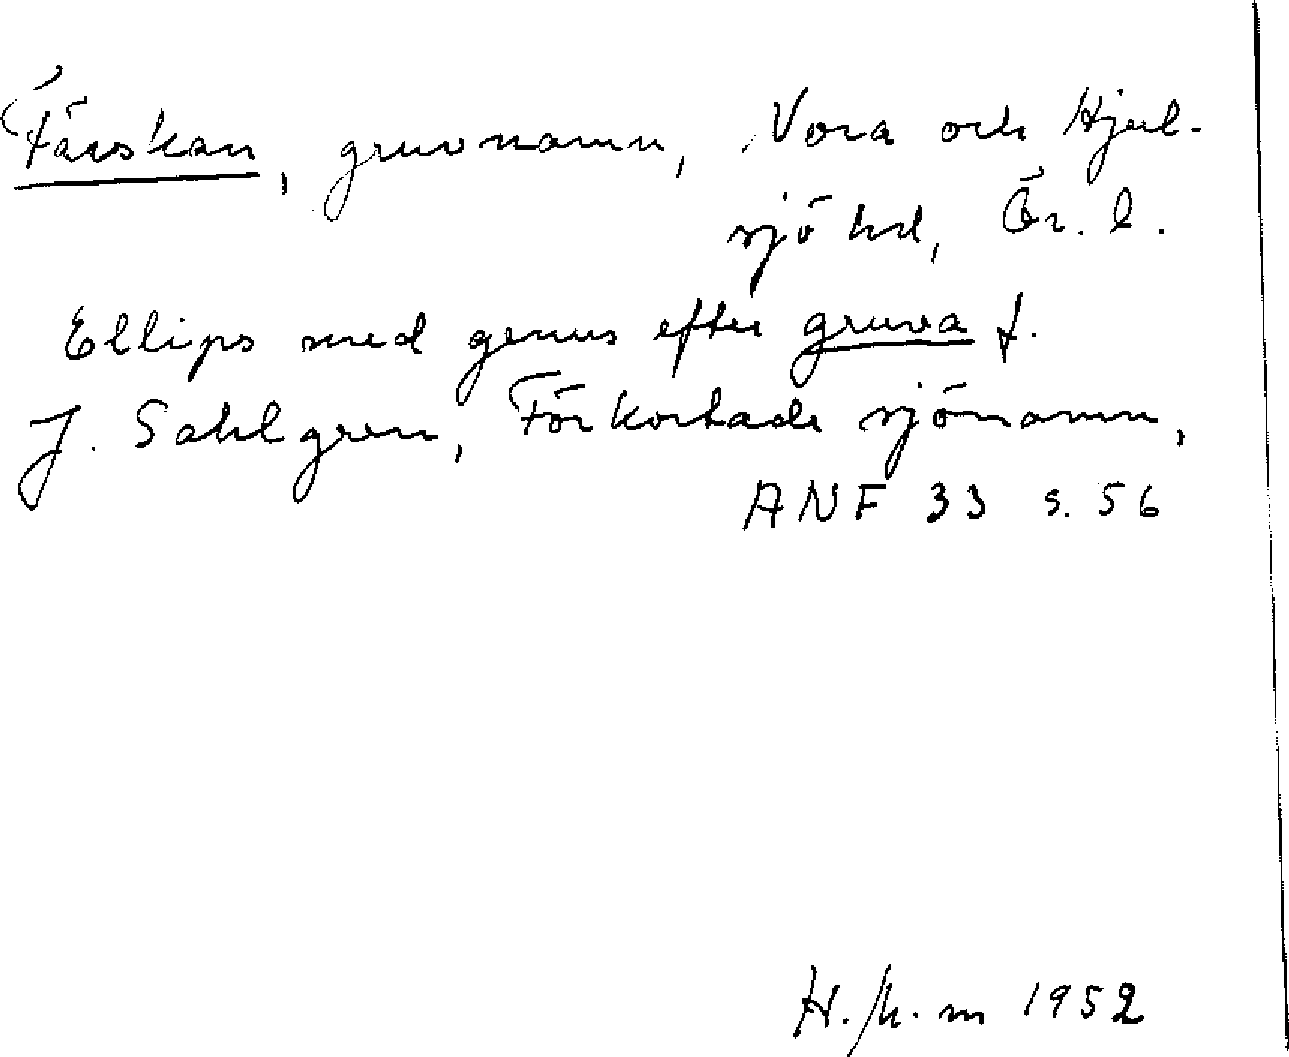 Färskan, gruvnamn, Nora och Hjul-
sjö hd, Ör. l.
Ellips med genus efter gruva f.
J. Sahlgren, Förkortade sjönamn,
ANF 33 s. 56
1952